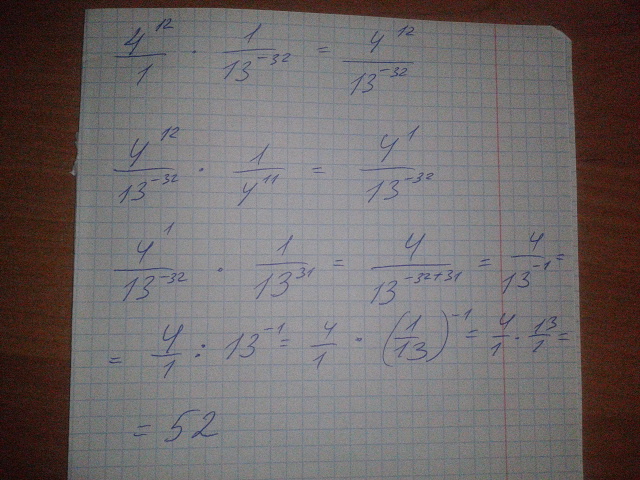 4^12/1 · 1/13^-32 = 4^12/13^-32
4^12/13^-32 · 1/4^11 = 4^1/13^-32
4^1/13^-32 · 1/13^31 = 4/13^-32+31 = 4/13^-1 =
= 4/1 : 13^-1 = 4/1 · (1/13)^-1 = 4/1 · 13/1 =
= 52